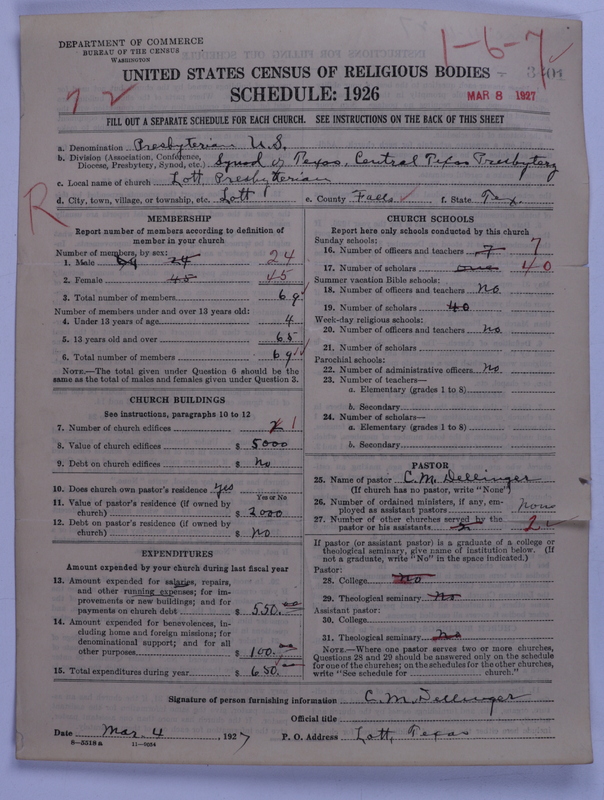 DEPARTMENT OF COMMERCE
BUREAU OF THE CENSUS
WASHINGTON
1-6-7
UNITED STATES CENSUS OF RELIGIOUS BODIES
SCHEDULE: 1926
MAR 8 1927
7 2
FILL OUT A SEPARATE SCHEDULE FOR EACH CHURCH. SEE INSTRUCTIONS ON THE BACK OF THIS SHEET
a. Denomination Presbyterian U.S.
b. Division (Association, Conference, Diocese, Presbytery, Synod, etc.) Synod of Texas, Central Texas Presbytery
c. Local name of church Lott Presbyterian
R
d. City, town, village, or township, etc. Lott e. County Falls f. State Tex.
MEMBERSHIP
Report number of members according to definition of
member in your church
Number of members, by sex:
1. Male 24 24
2. Female 45 45
3. Total number of members 69
Number of members under and over 13 years old:
4. Under 13 years of age 4
5. 13 years old and over 65
6. Total number of members 69
NOTE.—The total given under Question 6 should be the
same as the total of males and females given under Question 3.
CHURCH BUILDINGS
See instructions, paragraphs 10 to 12
7. Number of church edifices 2 1
8. Value of church edifices $ 5000
9. Debt on church edifices $ No
10. Does church own pastor's residence yes
Yes or No
11. Value of pastor's residence (if owned by
church) $ 2000
12. Debt on pastor's residence (if owned by
church) $ No
EXPENDITURES
Amount expended by your church during last fiscal year
13. Amount expended for salaries, repairs,
and other running expenses; for im-
provements or new buildings; and for
payments on church debt $ 550.00
14. Amount expended for benevolences, in-
cluding home and foreign missions; for
denominational support; and for all
other purposes $ 100.00
15. Total expenditures during year $ 650.00
CHURCH SCHOOLS
Report here only schools conducted by this church
Sunday schools:
16. Number of officers and teachers 7 7
17. Number of scholars 40
Summer vacation Bible schools:
18. Number of officers and teachers No
19. Number of scholars 40
Week-day religious schools:
20. Number of officers and teachers No.
21. Number of scholars
Parochial schools:
22. Number of administrative officers No.
23. Number of teachers—
a. Elementary (grades 1 to 8)
b. Secondary
24. Number of scholars—
a. Elementary (grades 1 to 8)
b. Secondary
PASTOR
25. Name of pastor C. M. Dellinger
(If church has no pastor, write "None")
26. Number of ordained ministers, if any, em-
ployed as assistant pastors None
27. Number of other churches served by the
pastor or his assistants 2 2
If pastor (or assistant pastor) is a graduate of a college or
theological seminary, give name of institution below. (If
not a graduate, write "No" in the space indicated.)
Pastor:
28. College No
29. Theological seminary No
Assistant pastor:
30. College
31. Theological seminary No
NOTE.—Where one pastor serves two or more churches,
Questions 28 and 29 should be answered only on the schedule
for one of the churches; on the schedules for the other churches,
write "See schedule for church."
Signature of person furnishing information C. M. Dellinger
Official title
Date Mar. 4, 1927 P. O. Address Lott, Texas
8-5518a 11-9034